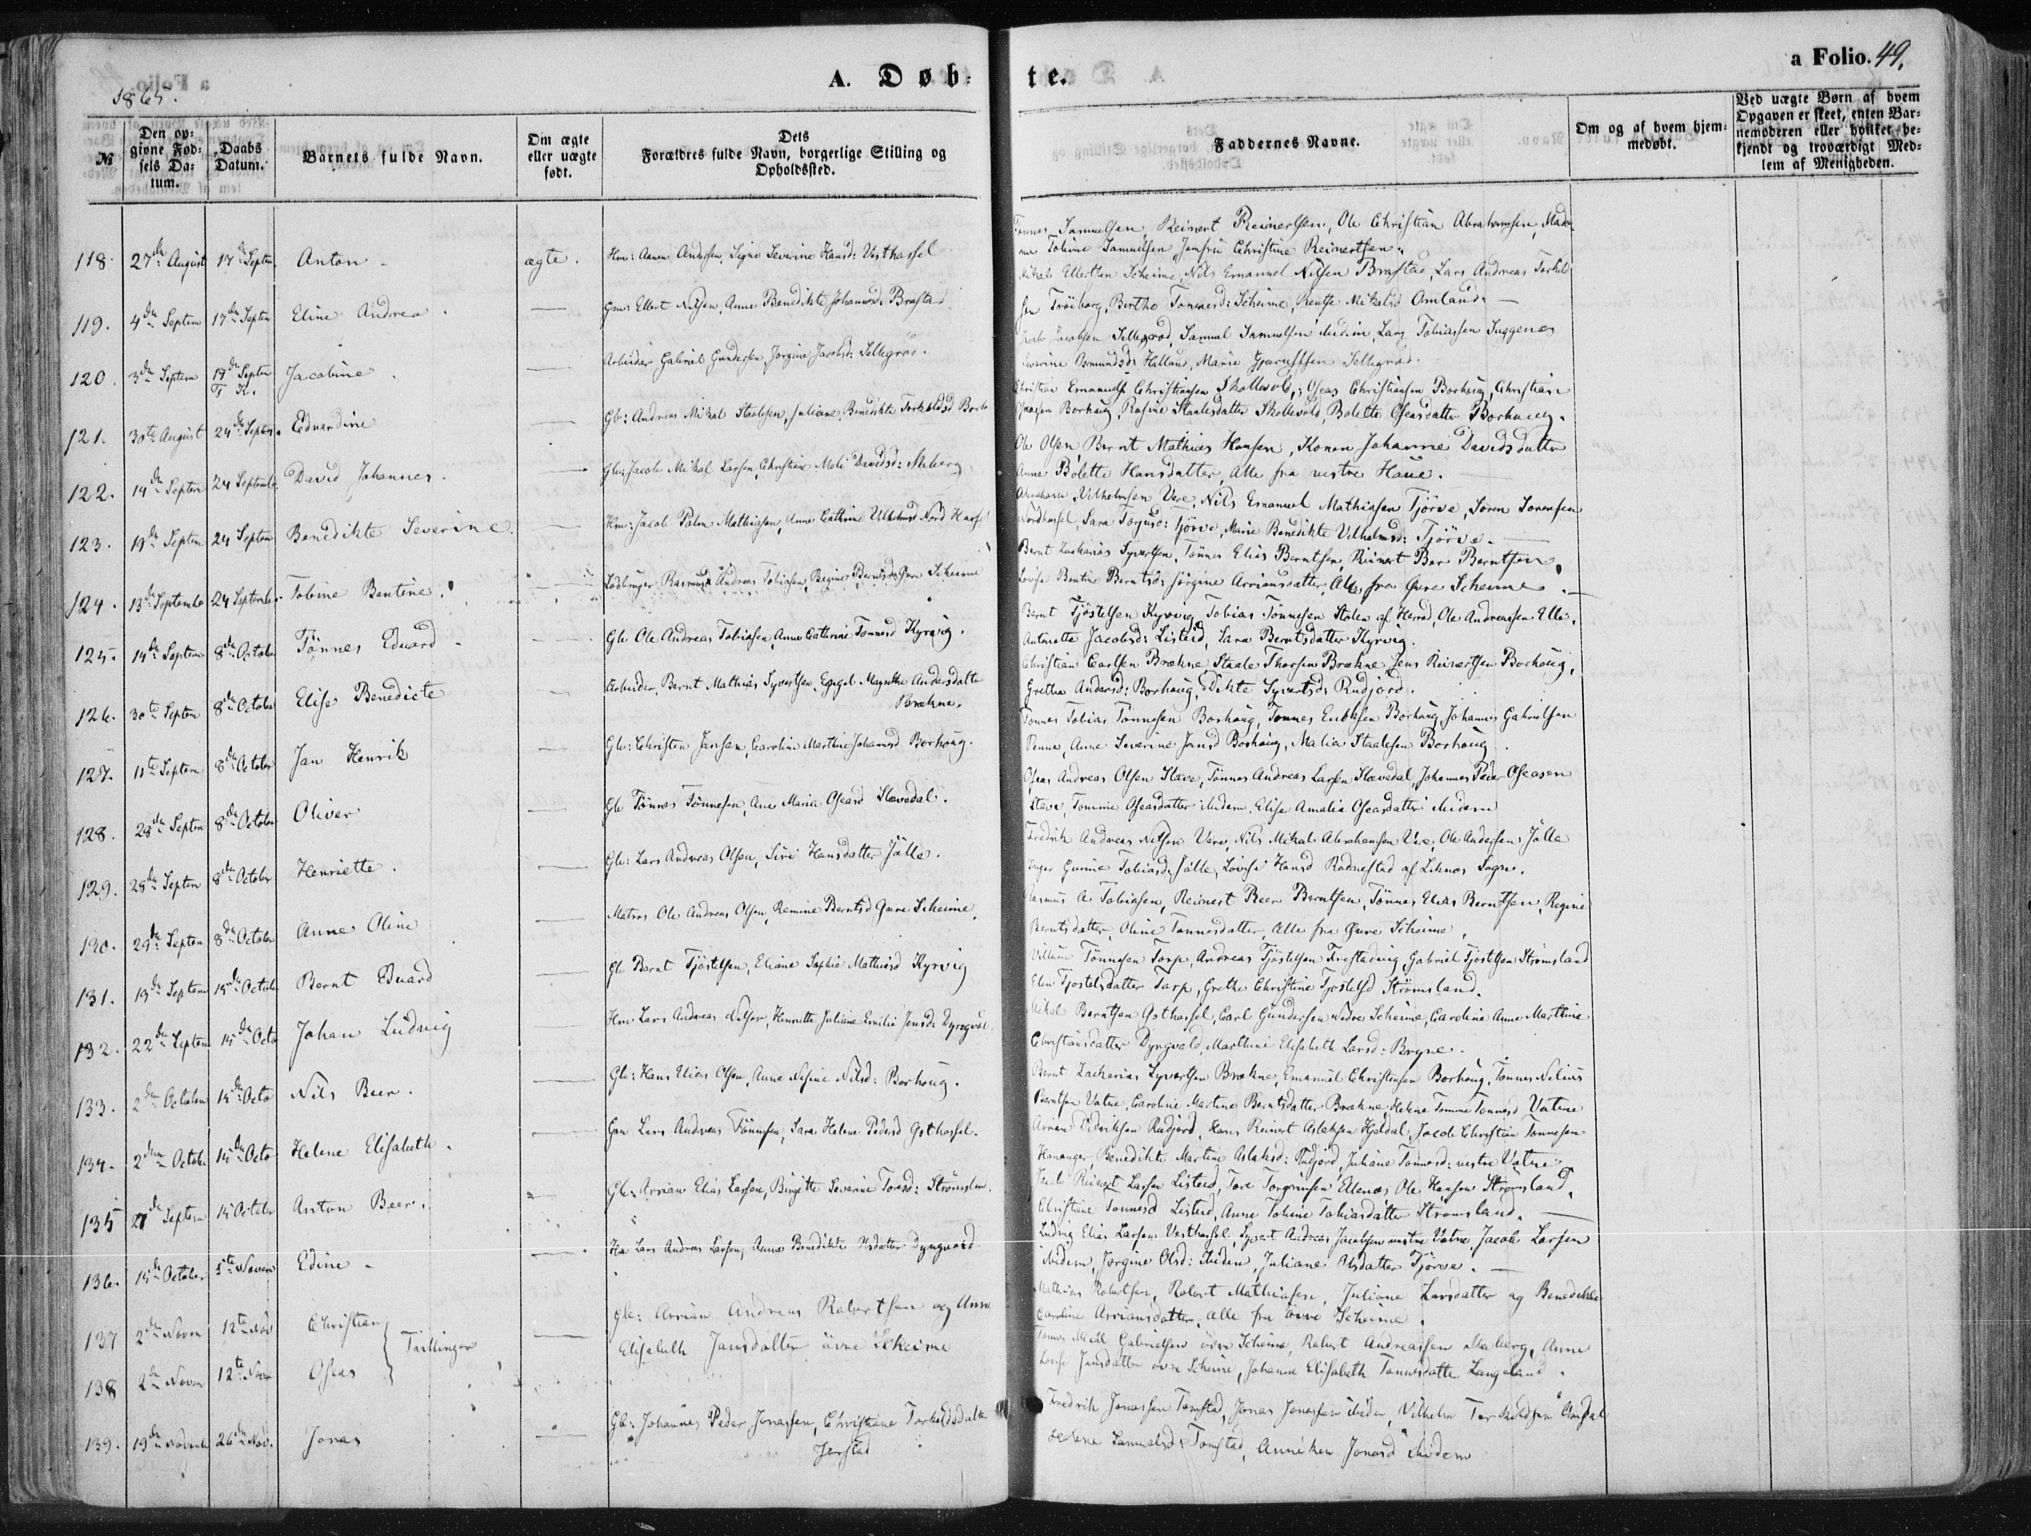 A. Døb-
te.
a Folio. 49.
1865.
№
Den op-
givne Fød-
sels Da-
tum.
Daabs
Datum.
Barnets fulde Navn.
Om ægte
eller uægte
født.
Dets
Forældres fulde Navn, borgerlige Stilling og
Opholdssted.
Faddernes Navne.
Om og af hvem hjem-
medøbt.
Ved uægte Børn af hvem
Opgaven er skeet, enten Bar-
nemoderen eller hvilket be-
kjendt og troværdigt Med-
lem af Menigheden.
118. 27de August 17de Septem Anton ægte. Hm: Aanen Andersen, Signe Severine Hansd: Vesthassel
Tønnes Samuelsen, Reinert Reinertsen, Ole Christian Abrahamsen, Mada
me Tobine Samuelsen Jomfru Christine Reinertsen.
119. 4de Septem 17de Septem Eline Andrea. Gm: Ellert Nilsen, Anne Benedikte Johannesd: Brastad
Mikal Ellertsen Scheime, Nils Emanuel Nilsen Brastad, Lars Andreas Torkild
sen Tröiborg, Berthe Tønnesd: Scheime, Mikalsd Omland.
120. 3de Septem 17de Septem Jacobine. Arbeider Gabriel Gundersen, Jorgine Jacobsd: Sellegrod.
T. K.
Jacobsen Sellegrod, Samuel Samuelsen ibidem, Lars Tobiassen Suggenes
Severine Osmundsd: Helland, Marie Sellegrod.
121. 30te August 24de Septem. Edvardine Gb: Andreas Mikal Staalesen, Juliane Benedikte Torkildsd Borh
Christian Emanuel Christiansen Skollevold, Oseas Christiansen Borhaug, Christian
Borhaug, Rasine Staalesdatter Skollevold, Bolette Oseasdatter Borhaug.
122. 14de Septem 24 Septemb David Johannes. Gb: Jacob Mikal Larsen, Christine Mali Davidsd: Meberg
Ole Olsen, Bernt Mathias Hansen, Konen Johanne Davidsdatter
Anne Bolette Hansdatter, Alle fra vestre Haue.
123. 19de Septem 24 Septem Benedikte Severine. Hm: Jacob Palm Mathiasen, Anne Cathrine Vilhelmsd Nord Hassel
Abraham Vilhelmsen Vere, Nils Emanuel Mathiasen Tjørve, Søren Sørensen
Nordhassel, Sara Torgusd: Tjørve, Marie Benedikte Vilhelmsd: Tjörve.
124. 13de Septembe 24 Septembe Tobine Bentine. Rasmus Andreas Tobiasen, Regine Berntsd: Øvre Scheime
Bernt Zacharias Syvertsen, Tønnes Elias Berntsen, Reinert Ber Berntsen,
Lovise Bentine Berntsd: Jörgine Arriansdatter, Alle fra Øvre Scheime.
125. 14de Septem 8de October Tönnes Eduard Gb: Ole Andreas Tobiasen, Anne Cathrine Tønnesd Kyrvig.
Bernt Tjöstelsen Kyrvig, Tobias Tønnesen Stolen af Herad, Ole Andreassen Elle,
Antonette Jacobsd: Listeid, Sara Berntsdatter Kyrvig.
126. 30te Septem 8de October Elise Benedicte Arbeider Bernt Mathias Syvertsen, Engel Magrethe Andersdatte
Brækne.
Christian Carlsen Brækne, Staale Thorsen Brækne, Jens Reinertsen Borhaug,
Grethe Andersd: Borhaug, Dikte Syvertsd: Rudjord.
127. 11te Septem 8de October Jan Henrik Gb: Christen Jansen, Caroline Marthine Johannesd Borhaug.
Tønnes Tobias Tønnesen Borhaug, Tønnes Borhaug, Johannes Gabrielsen
Penne, Anne Severine Jansd Borhaug, Malia Staalesen Borhaug.
128. 23de Septem 8de October Oliver Gb Tönnes Tönnesen, Ane Maria Oseasd Slævedal.
Oseas Andreas Olsen Stave, Tønnes Andreas Larsen Slævedal, Johannes Peder Oseasen
Stave, Tomine Oseasdatter ibidem, Elise Amalia Oseasdatter ibidem
129. 28de Septem 8de October Henriette. Gb: Lars Andreas Olsen, Siri Hansdatter Jølle.
Fredrik Andreas Nilsen Vere, Nils Mikal Abrahamsen Vere, Ole Andersen Jölle
Inger Gunnie Tobiasd: Jölle, Lovise Hansd Rödnestad af Liknes Sogn.
130. 29de Septem 8de October Anne Oline Matros Ole Andreas Olsen, Ramine Berntsd Øvre Scheime.
Rasmus A Tobiasen, Reinert Beer Berntsen, Tønnes Elias Berntsen, Regine
Berntsdatter, Oline Tønnesdatter, Alle fra Øvre Scheime,
131. 13de Septem 15de Octob Bernt Eduard Gb Bernt Tjöstelsen, Eliane Sophie Mathiasd Kyrvig
Villum Tønnesen Torp, Andreas Tjöstelsen Frestadvig, Gabriel Tjöstelsen Strömsland
Elen Tjostelsdatter Torp, Grethe Christine Tjostelsd Strömsland.
132. 22de Septem 15de Octo Johan Ludvig Hm: Lars Andreas Nilsen, Henrette Juliane Emilie Jensd: Dyngvol
Mikal Berntsen Østhassel, Carl Gundersen Nedre Scheime, Caroline Anne Marthine
Christiansdatter Dyngvold, Marthine Elisabeth Larsd: Bryne.
133. 2den October 15de Octo Nils Beer. Gb: Hans Elias Olsen, Anne Nisine Nilsd: Borhaug.
Bernt Zacharias Syvertsen Brækne, Emanuel Christensen Borhaug, Tønnes Nilius
Berntsen Vatne, Caroline Martine Berntsdatter Brækne, Helene Tomine Tønnesd Vatne
134. 2den October 15de Octo Helene Elisabeth. Gm Lars Andreas Tönnesen, Sara Helene Pedersd Østhassel.
Arrian Didriksen Rudjord, Hans Reinert Aslaksen Hjeldal, Jacob Christian Tønnesen
Hananger, Benedikte Martine Aslaksd: Rudjord, Juliane Tønnesd: vestre Vatne
135 27de Septem 15 October Anton Beer. Gb: Arrian Elias Larsen, Birgitte Severine Toresd: Strömslan.
Reinert Larsen Listeid, Tore Torgrimsen Ellenes, Ole Hansen Strömsland,
Christine Tønnesd Listeid, Anne Tobine Tobiasdatter Strömsland.
136. 15de October 5te Novem Edine Lars Andreas Larsen, Anne Benedikte Olsdatter Dyngvold
Ludvig Elias Larsen Vesthassel, Syvert Andreas Jacobsen vestre Vatne, Jacob Larsen
ibidem, Jørgine Olsd: ibidem, Juliane Olsdatter Tjörve.
137 2de Novem 12te Nov Christian Tvillinger Gb: Arrian Andreas Robertsen og Anne
Elisabeth Jansdatter övre Scheime
Mathias Robertsen, Robert Mathiasen, Juliane Larsdatter og Benedikte
Caroline Arriansdatter, alle fra övre Scheime.
138 2de Novem 12te Novem Oseas
Tønnes Gabrielsen övre Scheime, Robert Andreassen Meberg, Anne
Lovise Jansdatter övre Scheime, Johanne Elisabeth Tønnesdatter Langeland.
139. 19de Novembe 26de Nov. Jonas Gb: Johannes Peder Jonassen, Christiane Torkeldsdatte
Jerstad
Fredrik Jonassen Tomstad, Jonas Jonassen ibidem, Vilhelm Torkildsen Omdal
Helene Samuelsd: Tomstad, Anniken Jonasd ibidem